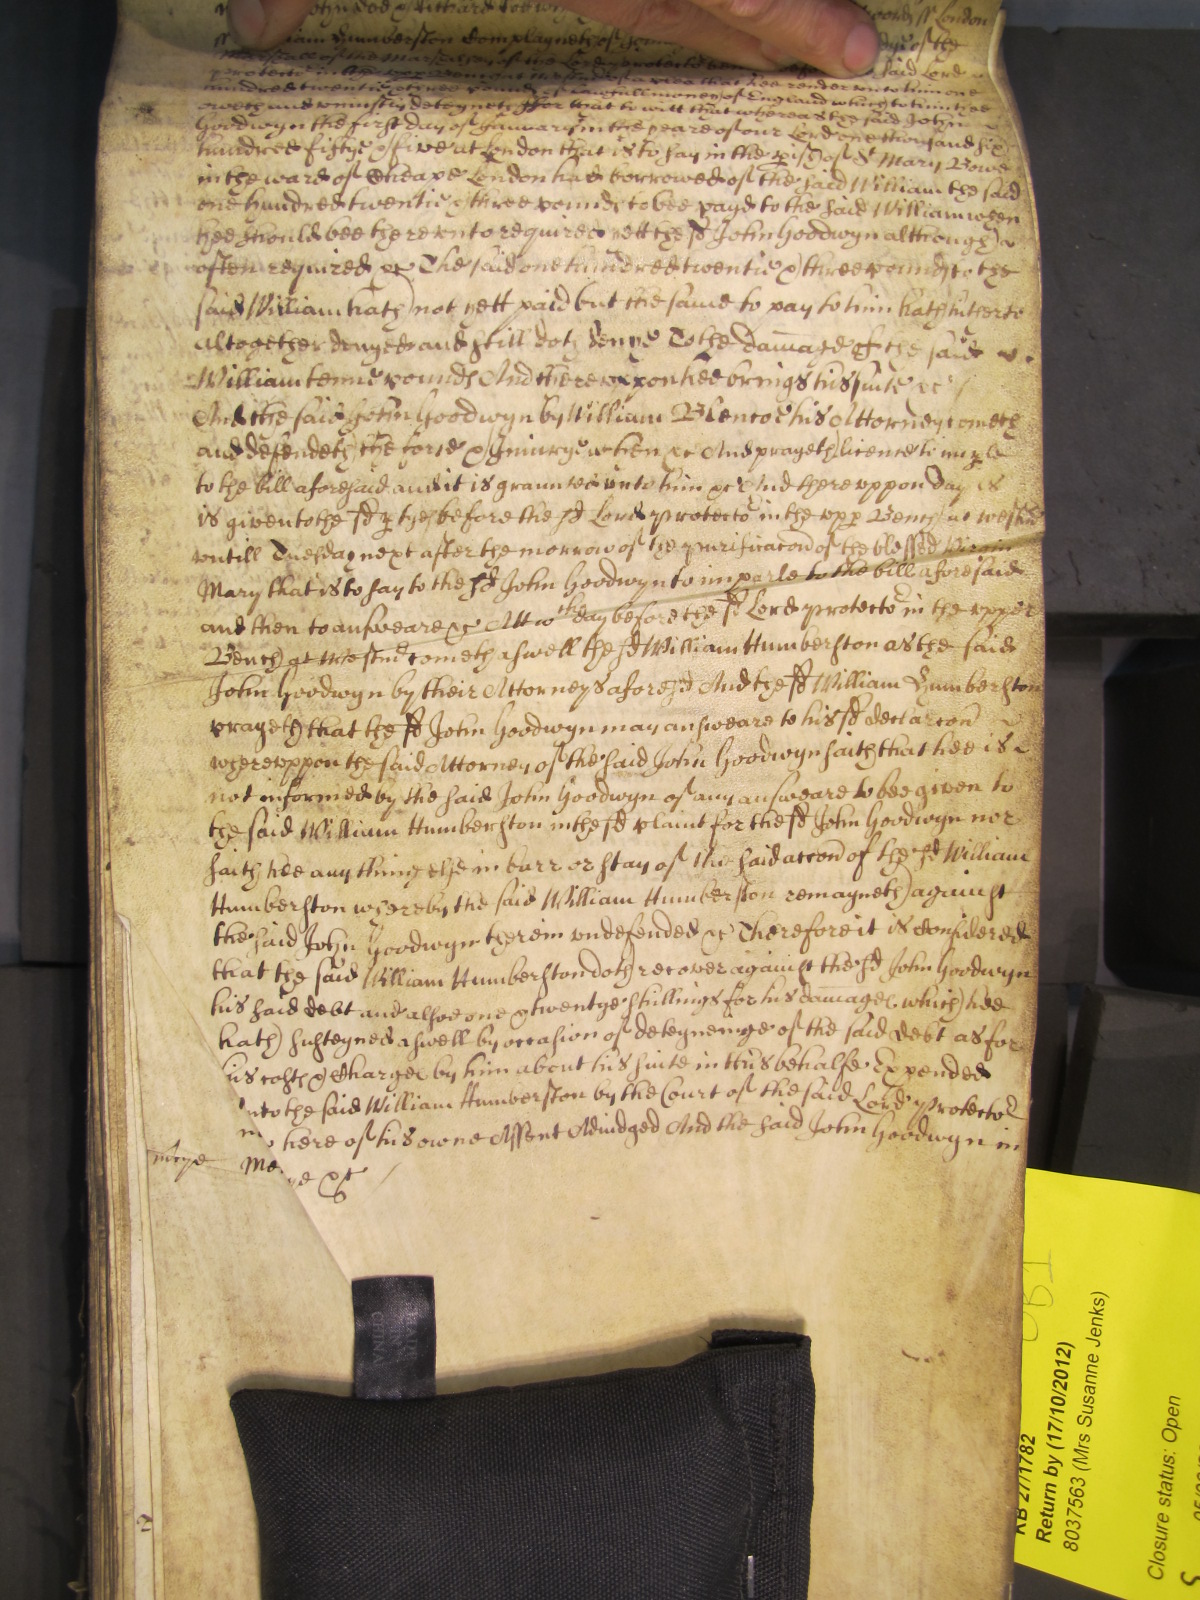 John Doe & Richard Roe
William Humberston complayneth of John
Marshall of the Marshalsey of the Lord Protector
protector in the upper Bench of a plea that hee render unto him one
hundred twentie & three pounds of lawfull money of England which to him hee
oweth and uniustly deteyneth For that to witt that whereas the said John
Goodwyn the first day of January in the yeare of our Lord one thousand six
hundred fiftye & five at London that is to say in the pish of St Mary Bowe
in the ward of Cheape London had borrowed of the said William the said
one hundred twentie & three pounds to bee payd to the said William when
hee should bee therevnto required yett the sd John Goodwyn although
often required &c The said one hundred twentie & three pounds to the
said William hath not yett paid but the same to pay to him hath hitherto
altogether denyed and still doth denye To the damage of the said
William tenne pounds And therevppon hee brings his suite &c
And the said John Goodwyn by William Blencoe his Attorney cometh
and defendeth the force & Iniurye when &c And prayeth licence to imple
to the bill aforesaid and it is graunted vnto him &c And therevppon day is
is given to the sd ptyes before the sd Lord protector in the vpp Bench at westm
vntill Tuesday next after the morrow of the purificacon of the blessed Virgin
Mary that is to say to the sd John Goodwyn to imparle to the bill aforesaid
and then to answeare &c Att wch day before the sd Lord protector in the vpper
Bench at Westmr cometh aswell the sd William Humberston as the said
John Goodwyn by their Attorneys aforesd And the sd William Humberston
prayeth that the sd John Goodwyn may answeare to his sd declaracon
wherevppon the said Attorney of the said John Goodwyn saith that hee is
not informed by the said John Goodwyn of any answeare to bee given to
the said William Humberston in the sd plaint for the sd John Goodwyn nor
saith hee any thing else in barr or stay of the said accon of the sd William
Humberston whereby the said William Humberston remayneth against
the said John Goodwyn therein vndefended &c Therefore it is Considered
that the said William Humberston doth recover against the sd John Goodwyn
his said debt and alsoe one & twentye shillings for his damages which hee
hath susteyned aswell by occasion of deteyneinge of the said debt as for
his costs & Charges by him about his suite in this behalfe Expended
vnto the said William Humberston by the Court of the said Lord Protector
here of his owne Assent Adiudged And the said John Goodwyn in
mcye Me ye &c
KB 27/1782
Return by (17/10/2012)
8037563 (Mrs Susanne Jenks)
Closure status: Open